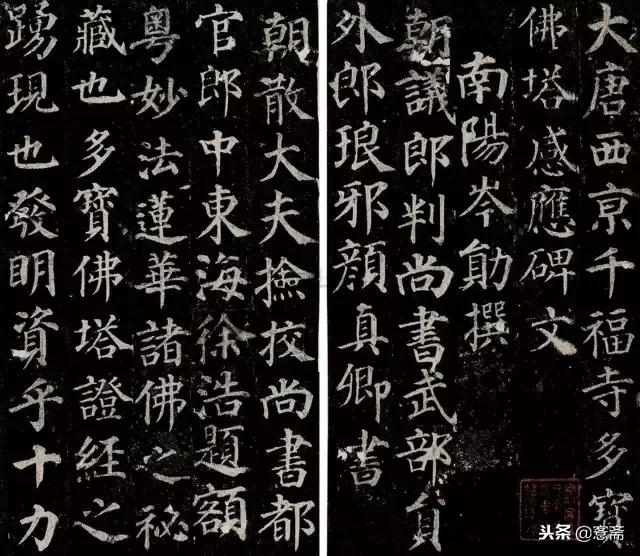 大唐西京千福寺多寶
佛塔感應碑文
南陽岑勛撰
朝議郎判尚書武部員
外郎琅邪顏真卿書
朝散大夫撿挍尚書都
官郎中東海徐浩題額
粵妙法蓮華諸佛之祕
藏也多寶佛塔證經之
踴現也發明資乎十力
头条@鶱斋